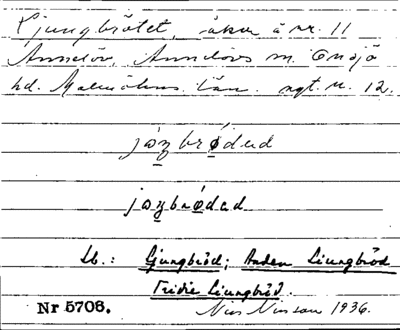 Ljungbrötet, åker å nr. 11
Annelöv, Annelövs sn. Onsjö
hd. Malmöhus län. ägt. n. 12.
jáŋbrødəd
jáŋbrødəd
Lb.: Ljungbröd; Anden Liungbröd
Tridie Liungbröd.
Nr 5706. Nils Nilsson 1936.